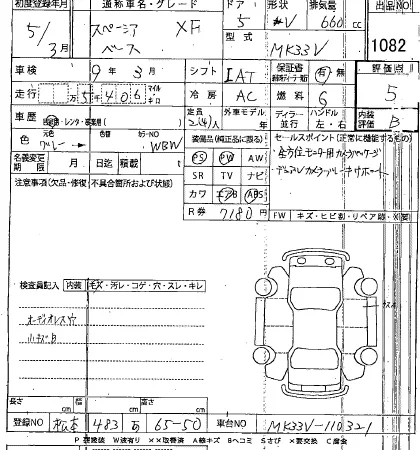 初度登録年月 通称車名・グレード ドア 形状 排気量 出品NO
5/3月 スペーシア ベース XF 5 V 660cc
型式 MK33V 1082
車検 9年 3月 シフト IAT 保証書 有・無 評価点
走行 万 5千406 マイル キロ 冷房 AC 燃料 G 5
車歴 自家・レンタ・事業用( ) 定員 2(4)人 外車モデル 年 ディーラー 並行 ハンドル 左・右 内装評価 B
色 元色 グレー カラーNO WBW 装備品(純正品に限る) セールスポイント(正常に機能するもの)
名義変更期限 月 日迄 積載 t PS PW AW
注意事項(欠品・修復・不具合箇所および状態) SR TV ナビ
カワ エアB ABS
R券 7180円 FW キズ・ヒビ割・リペア跡・X要
検査員記入 内装 キズ・汚レ・コゲ・穴・スレ・キレ
オーディオレス穴
小キズ凹
長さ cm 幅 cm 高さ cm
登録NO 松本 483 あ 65-50 車台NO MK33V-110321
P 要塗装 W波有り ××取替済 A線キズ Bヘコミ Sさび ×要交換 C腐食